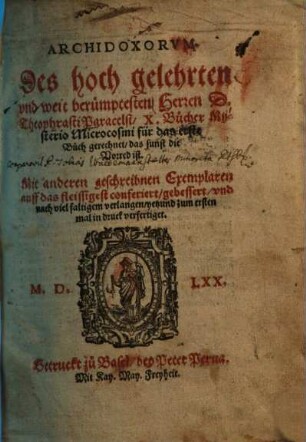 ARCHIDOXORVM
Des hoch gelehrten
vnd weit berümptesten Herren D.
Theophrasti Paracelsi/ X. Bücher My-
sterio Microcosmi für das erste
Buch gerechnet/ das sunst die
Vorred ist.
Mit anderen geschribnen Exemplaren
auff das fleissigest conferiert/gebessert/vnd
nach viel faltigem verlangen/yetzund zum ersten
mal in druck verfertiget.
M. D. LXX.
Getruckt zů Basel/ bey Peter Perna.
Mit Kay. May. Freyheit.